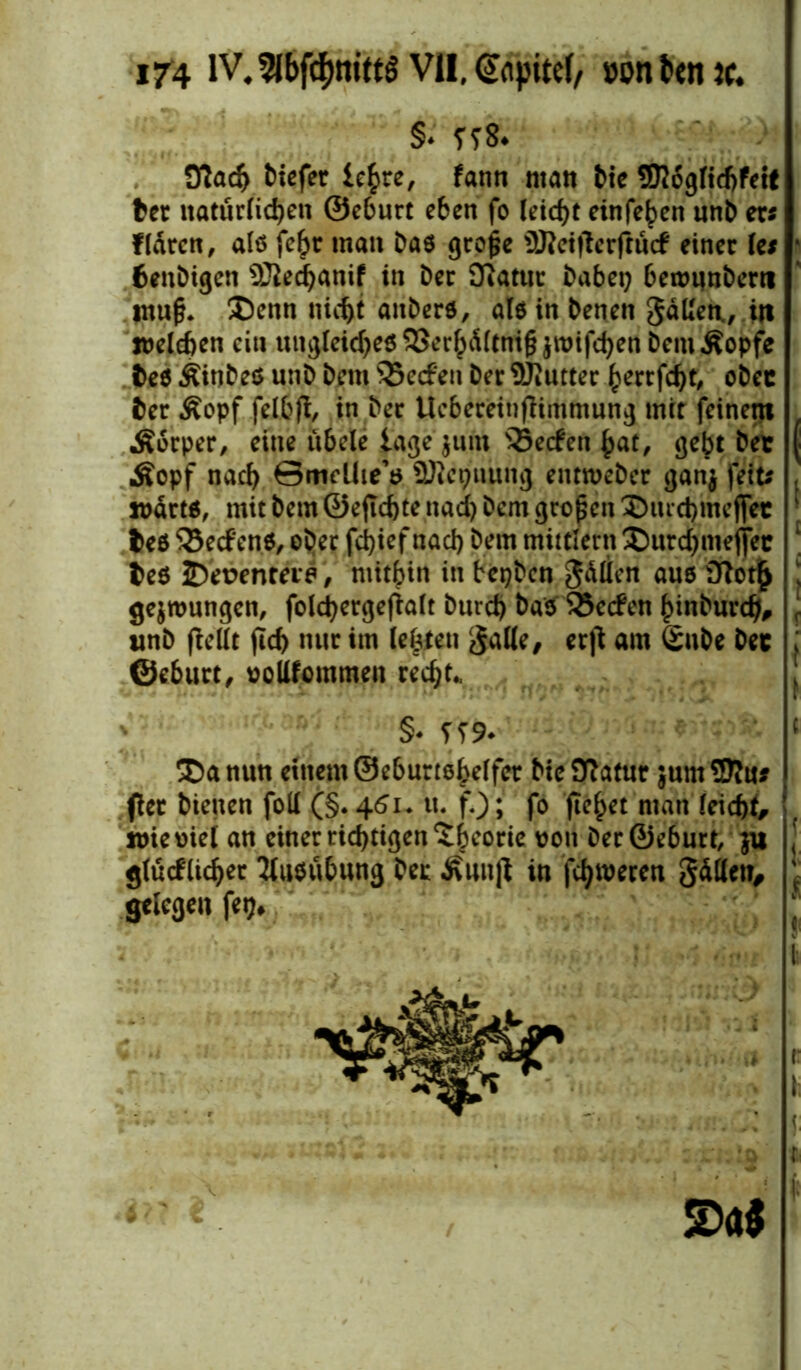 174 IV. Abschnitts VII. Capitel, von den ꝛc.
§. 558.
Nach dieser Lehre, kann man die Möglichkeit
der natürlichen Geburt eben so leicht einsehen und er-
klären, als sehr man das große Meisterstück einer le-
bendigen Mechanik in der Natur dabey bewundern
muß. Denn nicht anders, als in denen Fällen, in
welchen ein ungleiches Verhältniß zwischen dem Kopfe
des Kindes und dem Becken der Mutter herrscht, oder
der Kopf selbst, in der Uebereinstimmung mit seinem
Körper, eine übele Lage zum Becken hat, geht der
Kopf nach Smellie's Meynung entweder ganz seit-
wärts, mit dem Gesichte nach dem großen Durchmesser
des Beckens, oder schief nach dem mittlern Durchmesser
des Deventers, mithin in beyden Fällen aus Noth
gezwungen, solchergestalt durch das Becken hindurch,
und stellt sich nur im letzten Falle, erst am Ende der
Geburt, vollkommen recht.
§. 559.
Da nun einem Geburtshelfer die Natur zum Mu-
ster dienen soll (§. 461. u. f.); so siehet man leicht,
wieviel an einer richtigen Theorie von der Geburt, zu
glücklicher Ausübung der Kunst in schweren Fällen,
gelegen sey.
Das